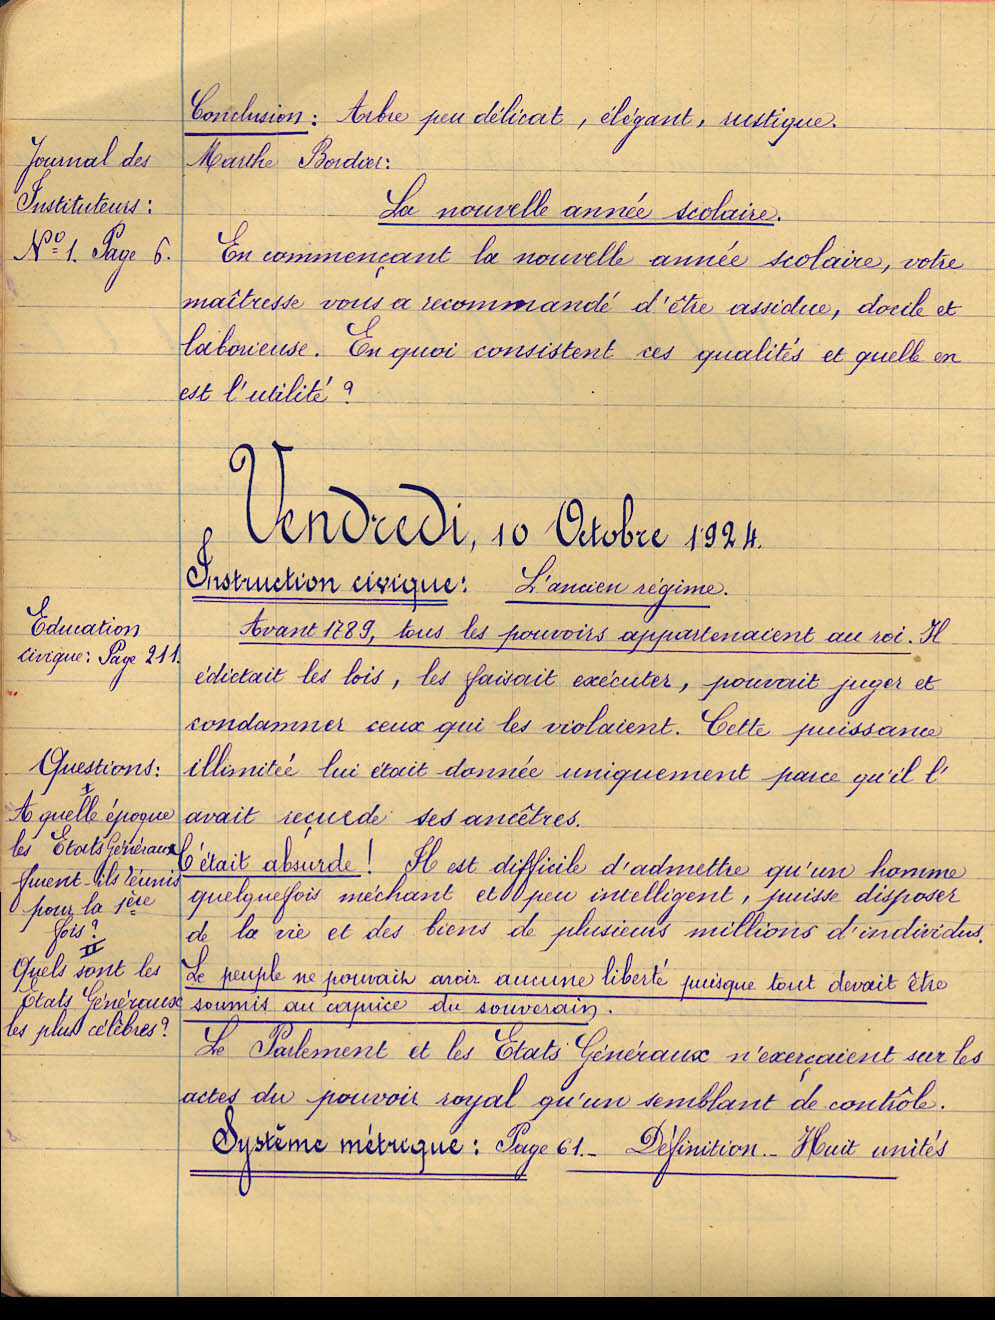 Conclusion : Arbre peu délicat, élégant, rustique.
Journal des
Instituteurs :
Nº 1. Page 6.
Marthe Bordier :
La nouvelle année scolaire.
En commençant la nouvelle année scolaire, votre
maîtresse vous a recommandé d'être assidue, docile et
laborieuse. En quoi consistent ces qualités et quelle en
est l'utilité ?
Vendredi, 10 Octobre 1924.
Instruction civique : L'ancien régime.
Education
civique : Page 211.
Avant 1789, tous les pouvoirs appartenaient au roi. Il
édictait les lois, les faisait exécuter, pouvait juger et
condamner ceux qui les violaient. Cette puissance
illimitée lui était donnée uniquement parce qu'il l'
avait reçue de ses ancêtres.
Questions :
I
A quelle époque
les Etats Généraux
furent-ils réunis
pour la 1ère
fois ?
II
Quels sont les
Etats Généraux
les plus célèbres ?
C'était absurde ! Il est difficile d'admettre qu'un homme
quelquefois méchant et peu intelligent, puisse disposer
de la vie et des biens de plusieurs millions d'individus.
Le peuple ne pouvait avoir aucune liberté puisque tout devait être
soumis au caprice du souverain.
Le Parlement et les Etats Généraux n'exerçaient sur les
actes du pouvoir royal qu'un semblant de contrôle.
Système métrique : Page 61._ Définition _ Huit unités